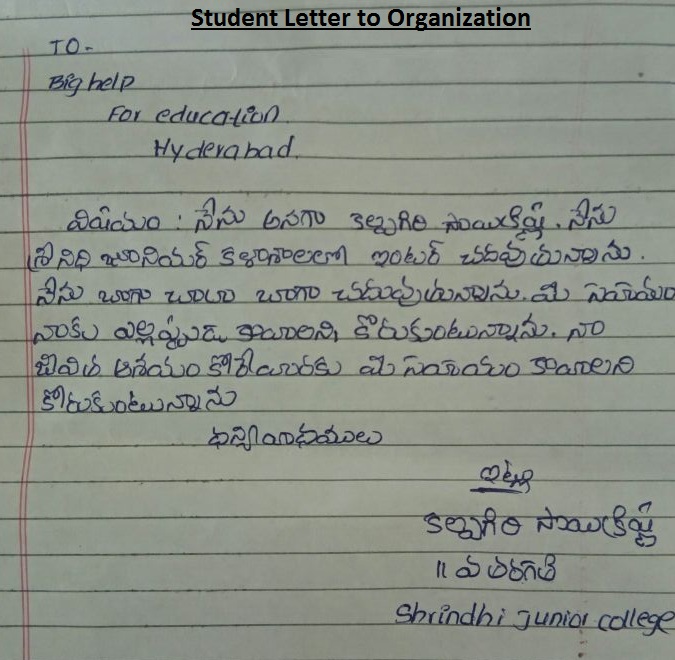 Student Letter to Organization
TO-
Big help
For education
Hyderabad.
విషయం : నేను అనగా కల్బుగిరి సాయిక్రిష్ణ. నేను
శ్రీనిధి జూనియర్ కళాశాలలో ఇంటర్ చదువుచున్నాను.
నేను బాగా బాగా బాగా చదువుచున్నాను. మీ సహాయం
నాకు ఎల్లప్పుడు కావాలని కోరుకుంటున్నాను. నా
జీవిత ఆశయం కోసం మీ సహాయం కావాలని
కోరుకుంటున్నాను
ధన్యవాదములు
ఇట్లు
కల్బుగిరి సాయిక్రిష్ణ
11 వ తరగతి
Shrindhi junior college